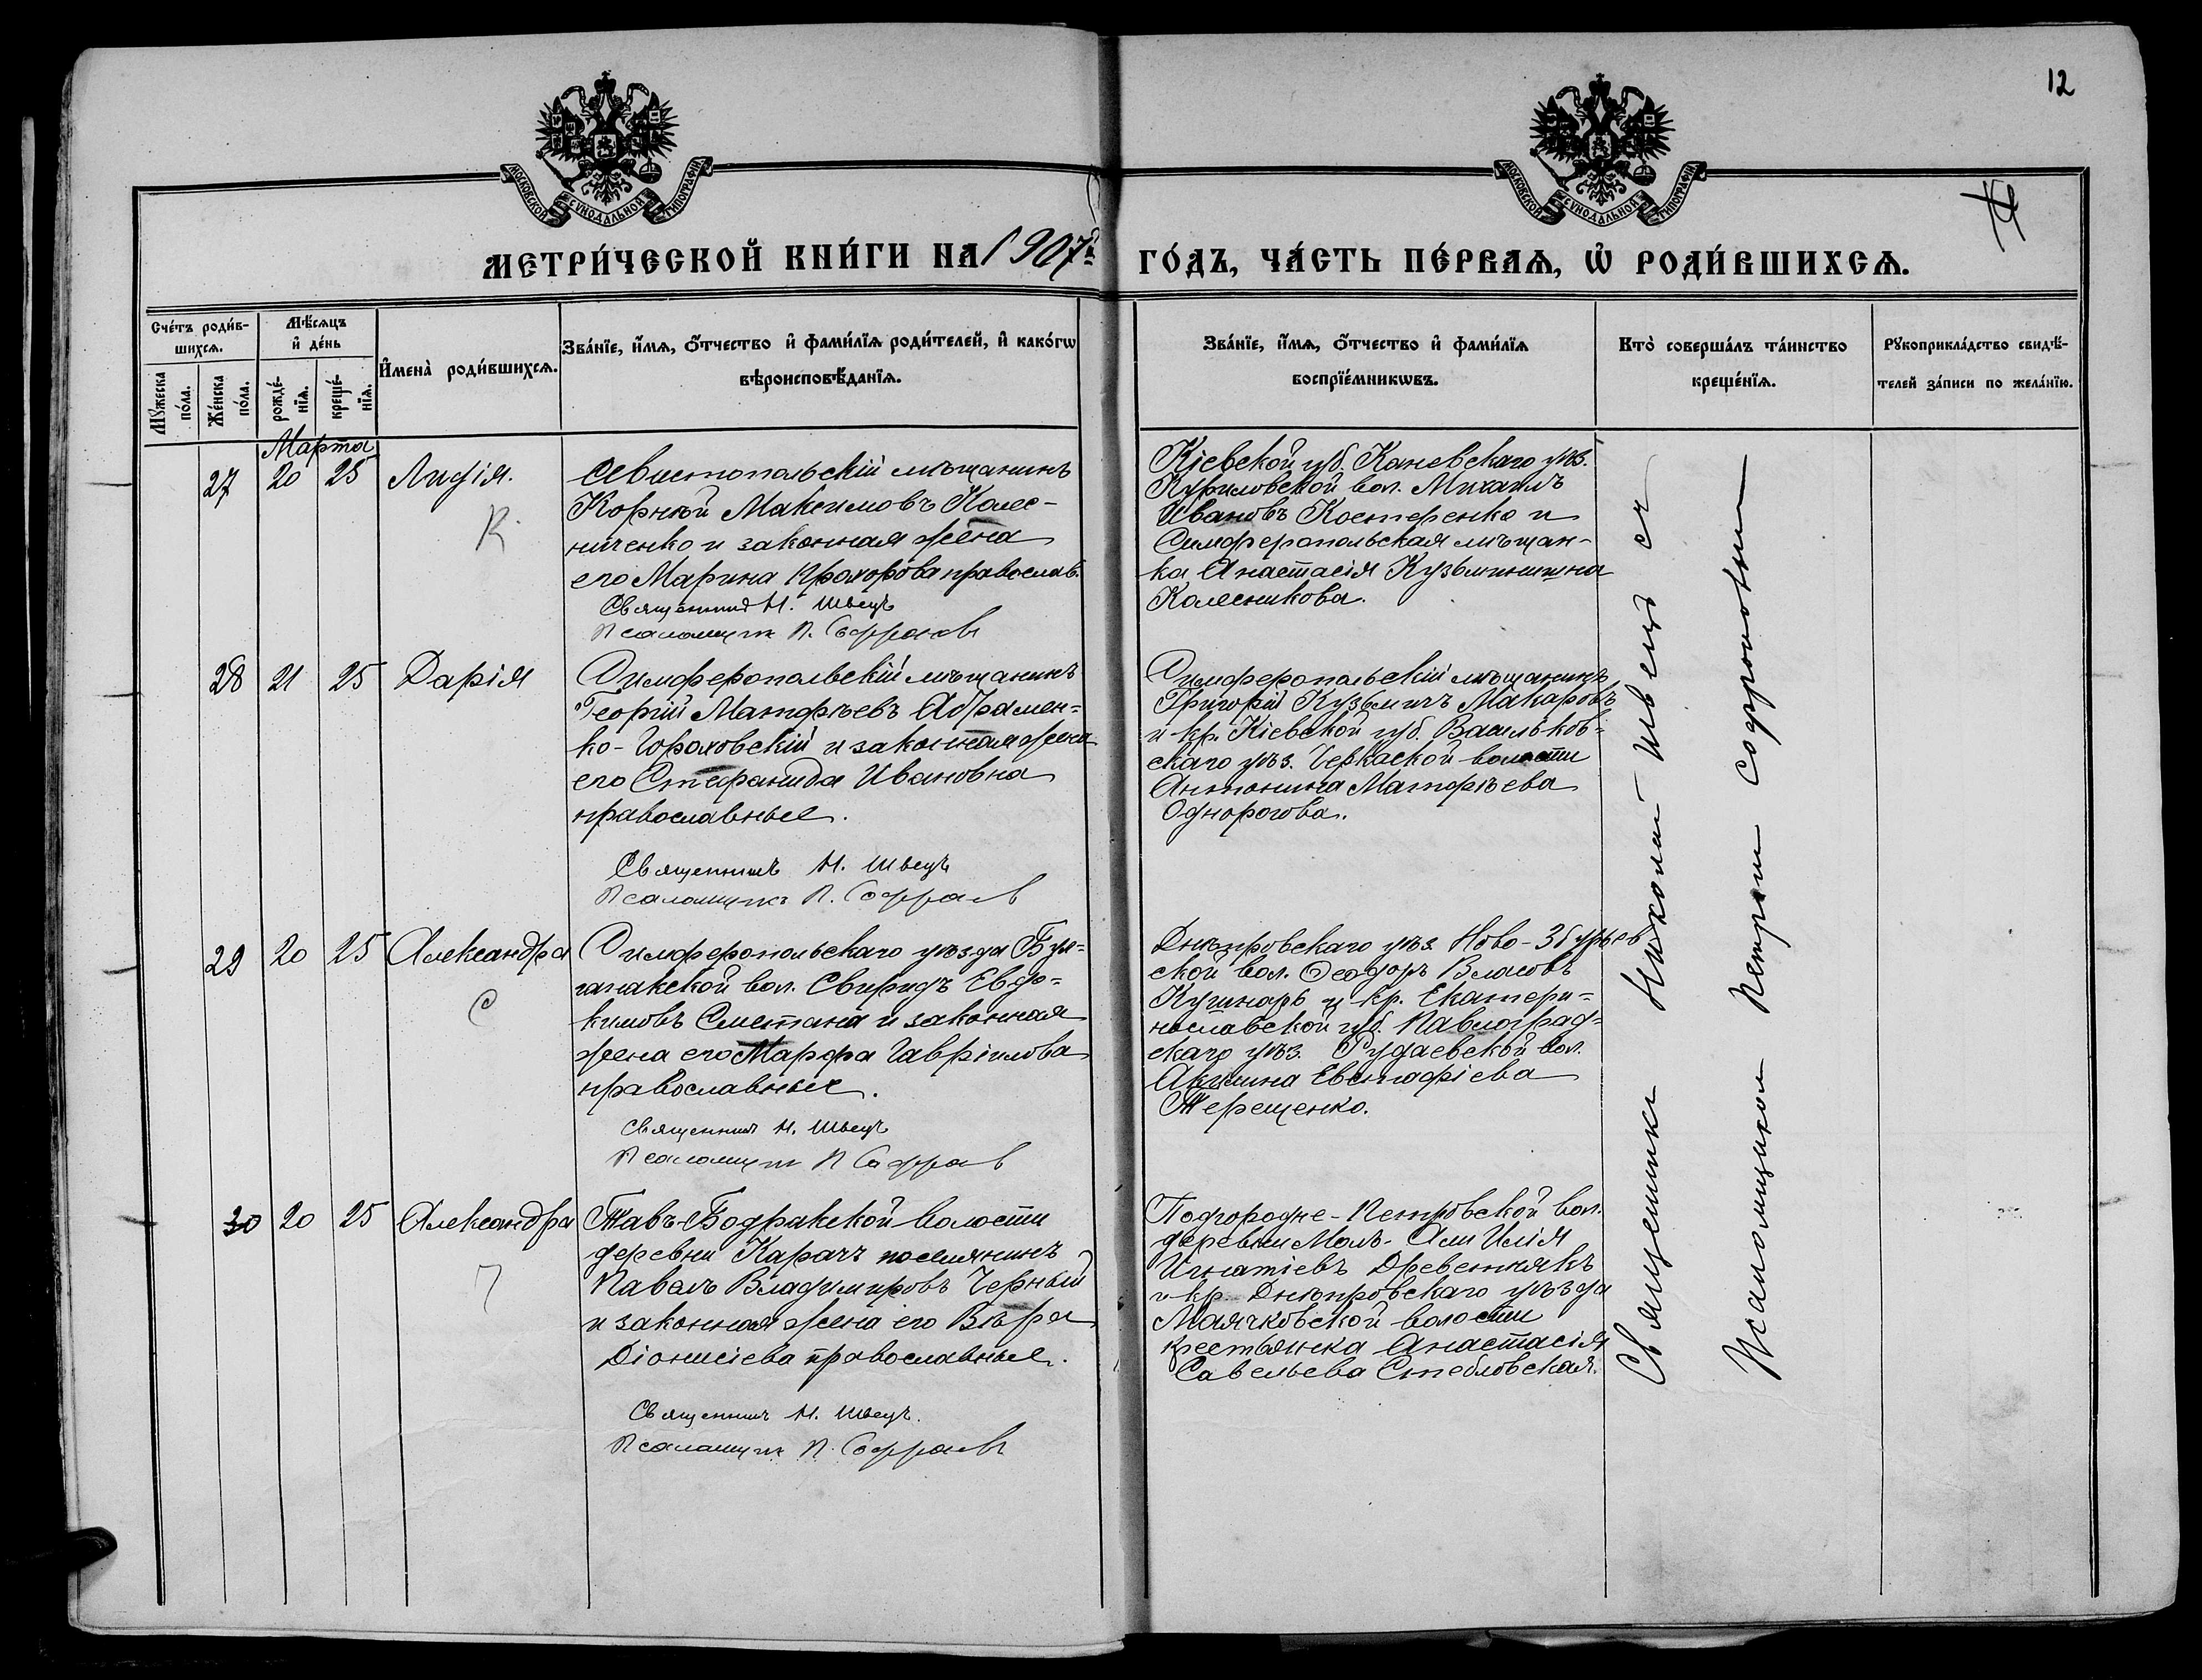 12
МОСКОВСКОЙ СѴНОДАЛЬНОЙ ТИПОГРАФІИ
МОСКОВСКОЙ СѴНОДАЛЬНОЙ ТИПОГРАФІИ
МЕТРИ́ЧЕСКОЙ КНИ́ГИ НА 1907й ГО́ДЪ, ЧА́СТЬ ПЕ́РВАЯ, Ѡ҆ РОДИ́ВШИХСѦ.
Сче́тъ роди́в-
шихсѧ.
Мꙋ́жеска
по́ла.
Же́нска
по́ла.
Мѣ́сѧцъ
и҆ де́нь
рожде́-
нїѧ.
креще́-
нїѧ.
И҆мена̀ роди́вшихсѧ.
Зва́нїе, и҆́мѧ, ѻ҆́тчество и҆ фами́лїѧ роди́телей, и҆ како́гѡ
вѣроисповѣ́данїѧ.
Зва́нїе, и҆́мѧ, ѻ҆́тчество и҆ фами́лїѧ
воспрїе́мникѡвъ.
Кто̀ соверша́лъ та́инство
креще́нїѧ.
Рꙋкоприкла́дство свидѣ́-
телей за́писи по жела́нїю.
Марта
27 20 25 Лидія.
К
Севастопольскій мѣщанинъ
Корній Максимовъ Колес-
ниченко и законная жена
его Марина Прохорова православ.
Священникъ Н. Швецъ
Псаломщик П. Софронов
Кіевской губ. Каневскаго уѣз.
Куриловской вол. Михаилъ
Ивановъ Костеренко и
Симферопольская мѣщан-
ка Анастасія Кузьминишна
Колесникова.
28 21 25 Дарія
Симферопольскій мѣщанинъ
Георгій Матфѣевъ Абрамен-
ко-Гороховскій и законная жена
его Стефанида Ивановна
православные.
Священникъ Н. Швецъ
Псаломщикъ П. Софронов
Симферопольскій мѣщанинъ
Григорій Кузьмичъ Макаровъ
и кр. Кіевской губ. Васильков-
скаго уѣз. Черкаской волости
Антонина Матфѣева
Однорогова.
29 20 25 Александра
С
Симферопольскаго уѣзда Бул-
ганакской вол. Свиридъ Евдо-
кимовъ Сметана и законная
жена его Марфа Гавріилова
православные.
Священникъ Н. Швецъ
Псаломщик П Софронов
Днѣпровскаго уѣз. Ново-Збурьев
ской вол. Ѳеодоръ Власовъ
Кушнарь и кр. Екатери-
нославской губ. Павлоград-
скаго уѣз. Рудаевской вол.
Акилина Евстафіева
Терещенко.
30 20 25 Александра
Тавъ-Бодракской волости
деревни Карачъ поселянинъ
Павелъ Владимировъ Черный
и законная жена его Вѣра
Діонисіева православные.
Священникъ Н. Швецъ.
Псаломщик П. Софронов
Подгородне-Петровской вол.
деревни Молъ-Али Илія
Игнатіевъ Древетнякъ
и кр. Днѣпровскаго уѣзда
Маячковской волости
крестьянка Анастасія
Савельева Стебловская.
Священникъ Николай Швецъ съ
Псаломщикомъ Петромъ Софроновымъ